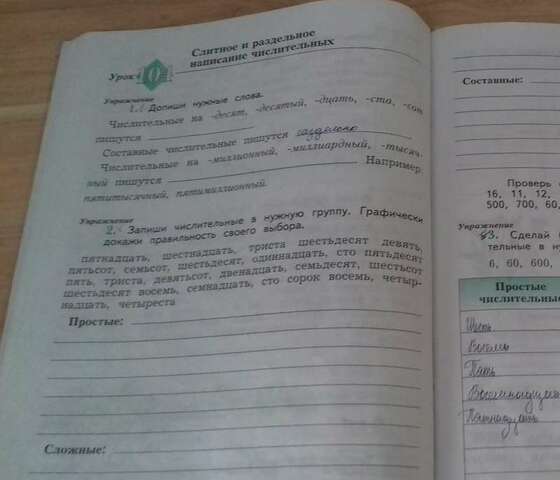 Слитное и раздельное
написание числительных
Урок
Упражнение
1. Допиши нужные слова.
Числительные на -десят, -десятый, -дцать, -ста, -сот
пишутся
Составные числительные пишутся раздельно
Числительные на -миллионный, -миллиардный, -тысяч-
ный пишутся Например,
пятитысячный, пятимиллионный.
Упражнение
2. Запиши числительные в нужную группу. Графически
докажи правильность своего выбора.
пятнадцать, шестнадцать, триста шестьдесят девять,
пятьсот, семьсот, шестьдесят, одиннадцать, сто пятьдесят
пять, триста, девятьсот, двенадцать, семьдесят, шестьсот
шестьдесят восемь, семнадцать, сто сорок восемь, четыр-
надцать, четыреста
Простые:
Сложные:
Составные:
Проверь
16, 11, 12,
500, 700, 60,
Упражнение
3. Сделай
тельные в
6, 60, 600,
Простые
числительные
Шесть
Восемь
Пять
Восемнадцать
Пятнадцать